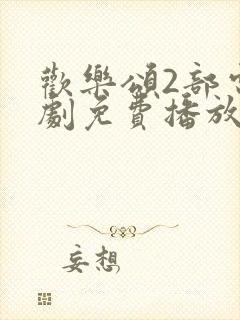 歡樂頌2部
劇免費播放
妄想